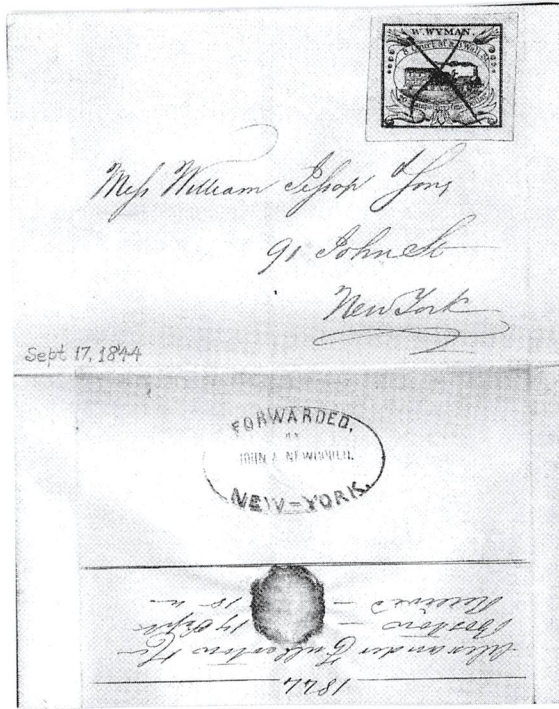 W. WYMAN.
8 Court St & 3 Wall St
Mess William Jessop & Sons
91 John St
New York
Sept 17, 1844
FORWARDED,
BY
JOHN
NEW-YORK.
1844
Alexander Fullerton & Co
Boston — 17 Sept
Received —